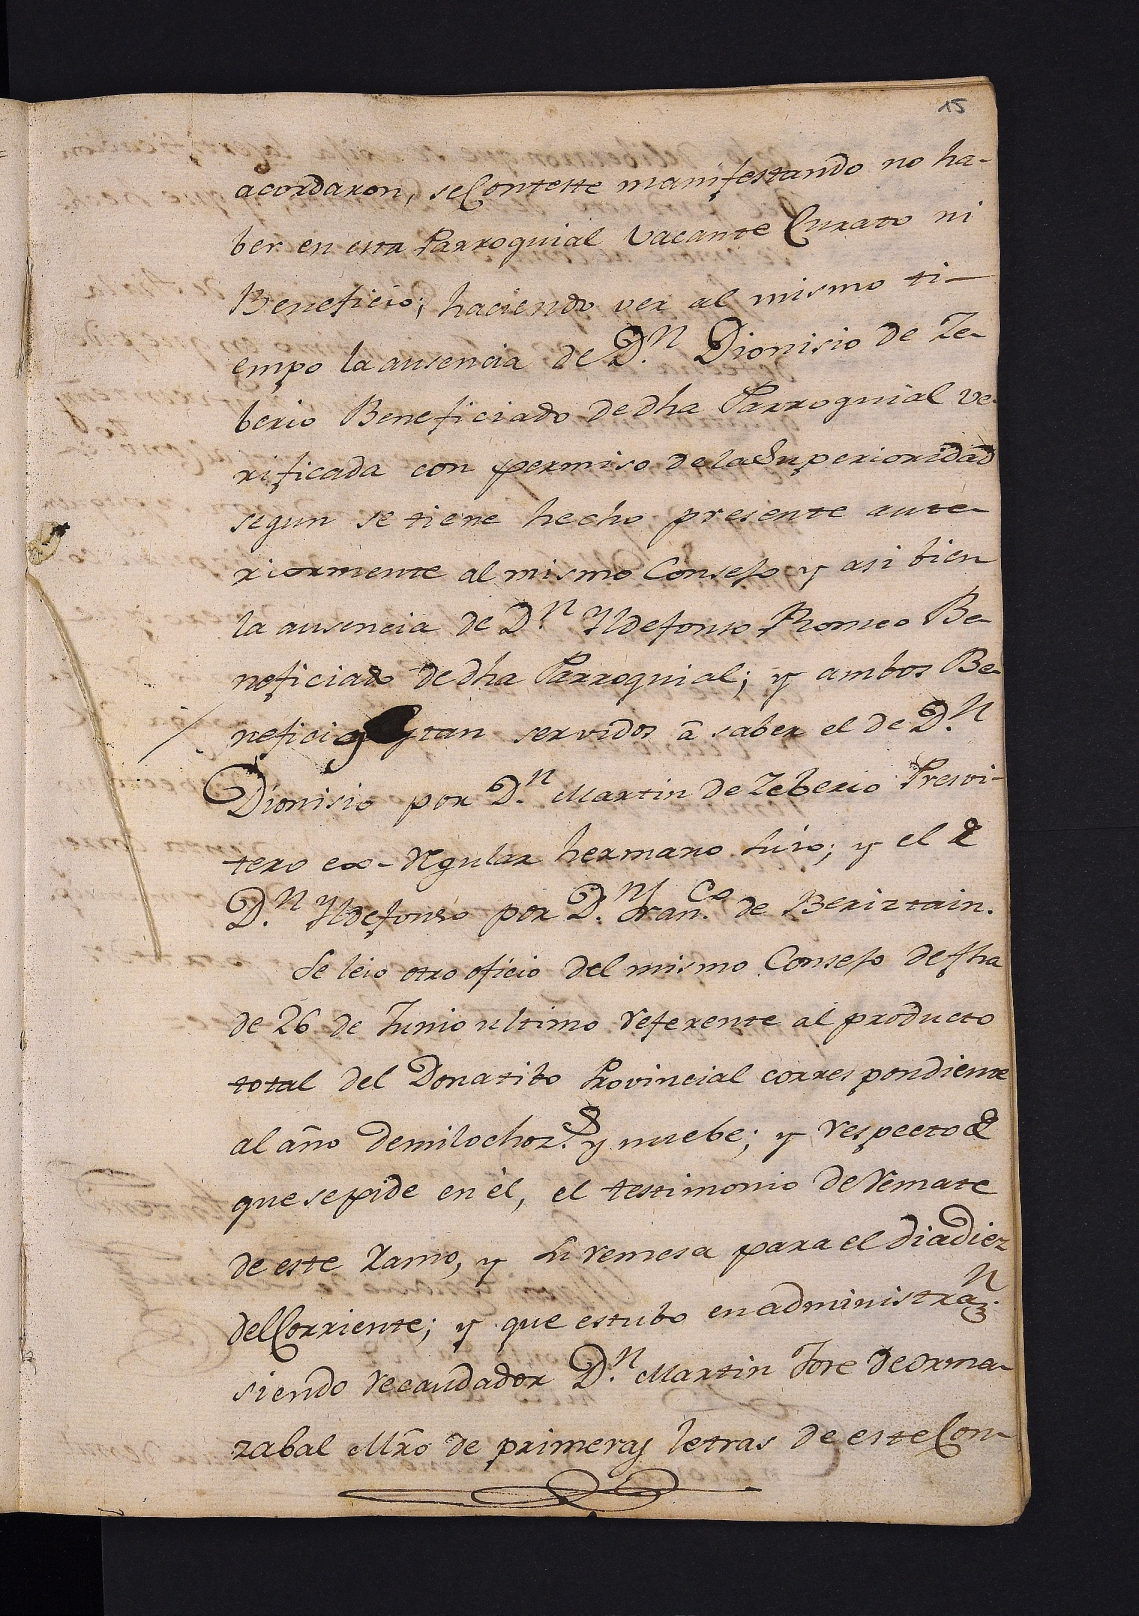 15
acordaron, se Conteste manifestando no ha-
ber en esta Parroquial Vacante Curato ni
Beneficio; haciendo ver al mismo ti-
empo la ausencia de D.n Dionisio de Ze-
berio Beneficiado de dha Parroquial ve-
rificada con permiso de la Superioridad
segun se tiene hecho presente ante-
riormente al mismo Consejo y asi bien
la ausencia de D.n Yldefonso Romeo Be-
neficiado de dha Parroquial; y ambos Be-
nefici stan servidos â saber el de D.n
Dionisio por D.n Martin de Zeberio Presvi-
tero ex-regular hermano suio; y el de
D.n Yldefonso por D.n Fran.co de Beriztain.
Se leio otro oficio del mismo Consejo de fha
de 26 de Junio ultimo referente al producto
total del Donatibo Provincial correspondiente
al año de mil ochoz.s y nuebe; y respecto de
que se pide en èl, el testimonio de remate
de este Ramo, y su remesa para el dia diez
del Corriente; y que estubo en administraz.n
siendo recaudador D.n Martin Jose de Orma-
zabal Mro de primeras letras de este Con-